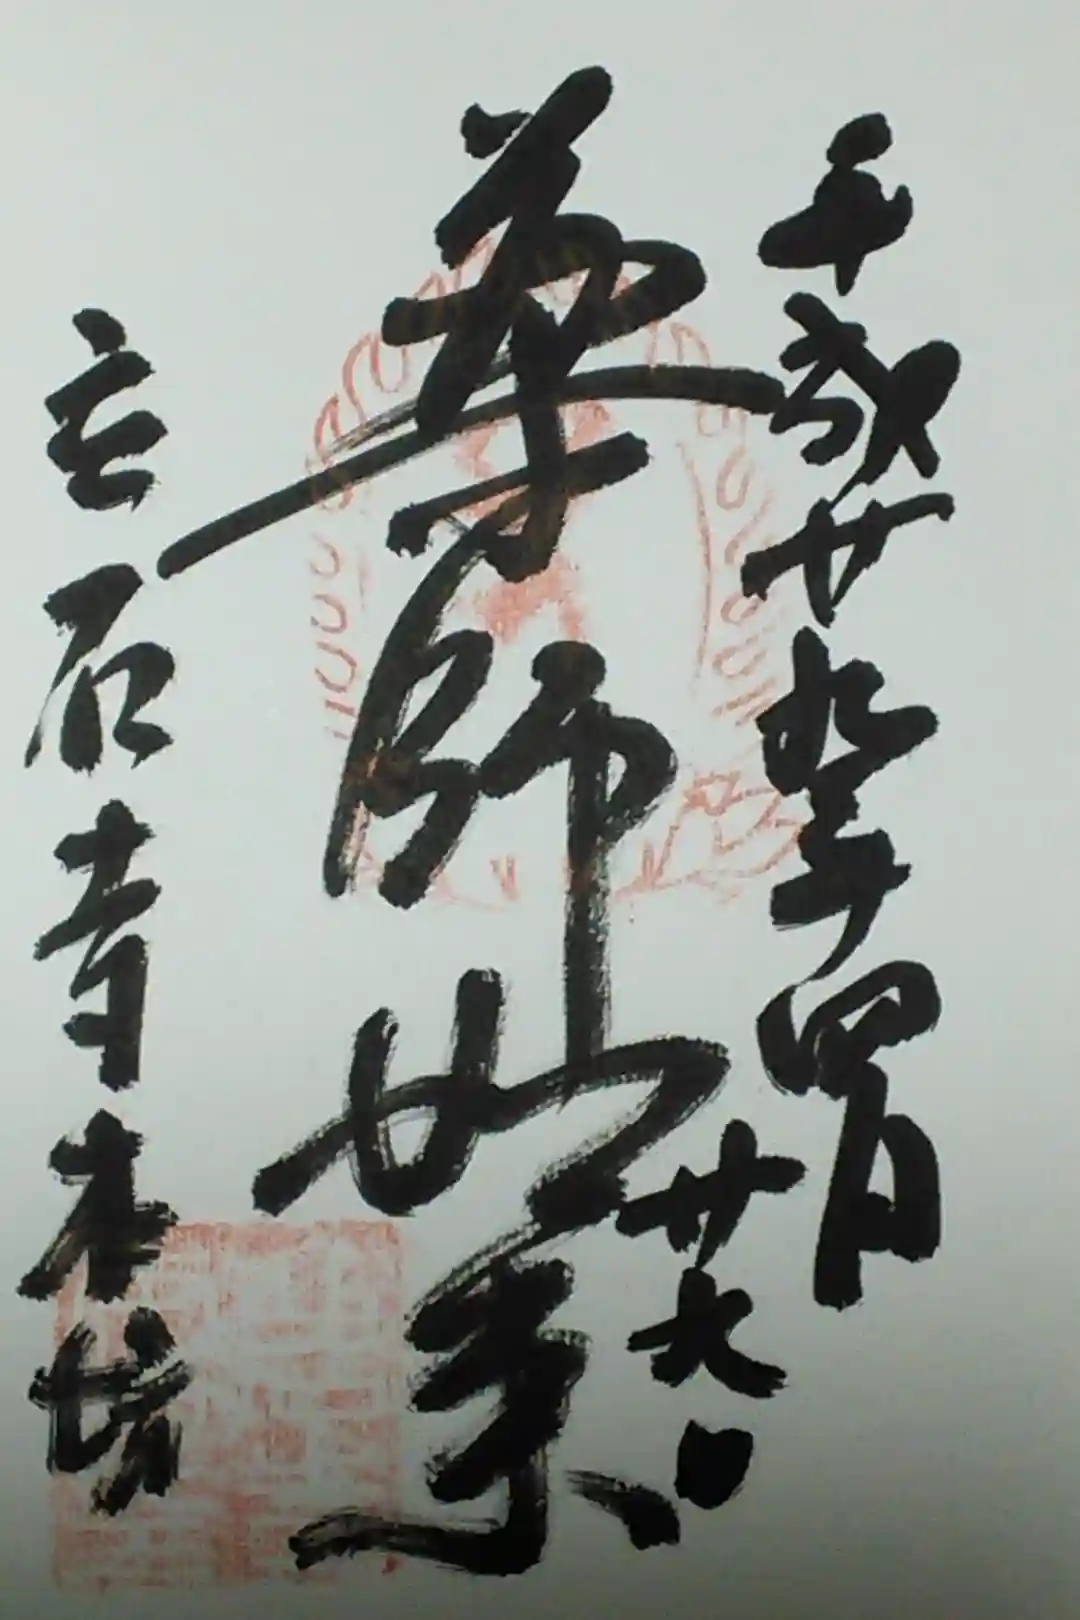 平成廿九年四月
廿六日
薬師如来
立石寺本坊